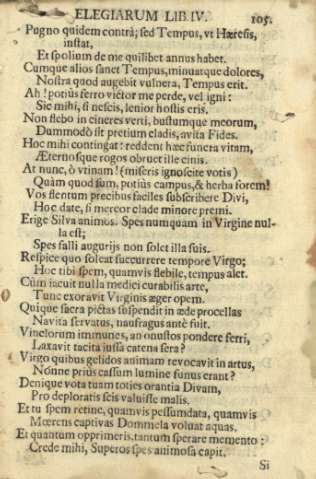 ELEGIARUM LIB. IV. 105.
Pugno quidem contrà; sed Tempus, vt Hæresis,
instat,
Et spolium de me quilibet annus habet.
Cumque alios sanet Tempus, minuatque dolores,
Nostra quod augebit vulnera, Tempus erit.
Ah! potiùs ferro victor me perde, vel igni:
Sic mihi, si nescis, lenior hostis eris.
Non flebo in cineres verti, bustumque meorum,
Dummodò sit pretium cladis, avita Fides.
Hoc mihi contingat: reddent hæc funera vitam,
Æternosque rogos obruet ille cinis.
At nunc, ô vtinam! (miseris ignoscite votis)
Quàm quod sum, potiùs campus, & herba forem!
Vos flentum precibus faciles subscribere Divi,
Hoc date, si mereor clade minore premi.
Erige Silva animos. Spes numquam in Virgine nul-
la est;
Spes falli augurijs non solet illa suis.
Respice quo soleat succurrere tempore Virgo;
Hoc tibi spem, quamvis flebile, tempus alet.
Cùm iacuit nulla medici curabilis arte,
Tunc exoravit Virginis æger opem.
Quique sacra pictas suspendit in æde procellas
Navita servatus, naufragus antè fuit.
Vinclorum immunes, an onustos pondere ferri,
Laxavit tacita iussa catena sera?
Virgo quibus gelidos animam revocavit in artus,
Nónne priùs cassum lumine funus erant?
Denique vota tuam toties orantia Divam,
Pro deploratis scis valuisse malis.
Et tu spem retine, quamvis pessumdata, quamvis
Mœrens captivas Dommela voluat aquas.
Et quantum opprimeris, tantum sperare memento:
Crede mihi, Superos spes animosa capit.
Si